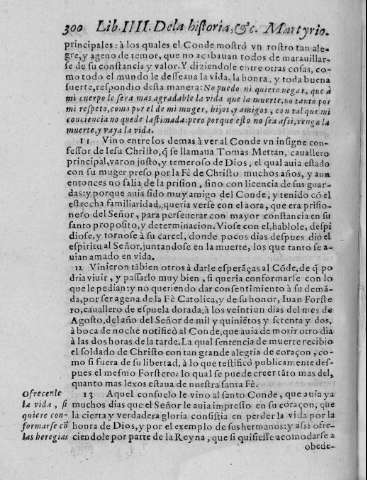 300 Lib. IIII. De la historia, &c. Martyrio.
principales: à los quales el Conde mostrò vn rostro tan ale-
gre, y ageno de temor, que no acabauan todos de marauillar-
se de su constancia y valor. Y diziendole entre otras cosas, co-
mo todo el mundo le desseaua la vida, la honra, y toda buena
suerte, respondio desta manera: No puedo ni quiero negar, que à
mi cuerpo le sera mas agradable la vida que la muerte, no tanto por
mi respeto, como por el de mi muger, hijos, y amigos, con tal que mi
conciencia no quede lastimada: pero porque esto no sea assi, venga la
muerte, y vaya la vida.
11 Vino entre los demas à ver al Conde vn insigne con-
fessor de Iesu Christo, q̃ se llamaua Tomas Mettan, cauallero
principal, varon justo, y temeroso de Dios, el qual auia estado
con su muger preso por la Fè de Christo muchos años, y aun
entonces no salia de la prision, sino con licencia de sus guar-
das: y porque auia sido muy amigo del Conde, y tenido cõ el
estrecha familiaridad, queria verse con el aora, que era prisio-
nero del Señor, para perseuerar con mayor constancia en su
santo proposito, y determinacion. Viose con el, hablole, despi
diose, y tornose à su carcel, donde pocos dias despues diò el
espiritu al Señor, juntandose en la muerte, los que tanto se a-
uian amado en vida.
12 Vinieron tãbien otros à darle esperãças al Cõde, de q̃ po
dria viuir, y passarlo muy bien, si queria conformarse con lo
que le pedian: y no queriendo dar consentimiento à su demã-
da, por ser agena de la Fè Catolica, y de su honor, Iuan Forste
ro, cauallero de espuela dorada, à los veintiun dias del mes de
Agosto, del año del Señor de mil y quiniẽtos y setenta y dos,
à boca de noche notificò al Conde, que auia de morir otro dia
à las dos horas de la tarde. La qual sentencia de muerte recibio
el soldado de Christo con tan grande alegria de coraçon, co-
mo si fuera de su libertad, à lo que testificò publicamente des-
pues el mesmo Forstero: lo qual se puede creer tãto mas del,
quanto mas lexos estaua de nuestra santa Fè.
Ofrecenle
la vida, si
quiere con-
formarse cõ
las heregias
13 Aquel consuelo le vino al santo Conde, que auia ya
muchos dias que el Señor le auia impresso en su coraçon, que
la cierta y verdadera gloria consistia en perder la vida por la
honra de Dios, y por el exemplo de sus hermanos: y assi ofre-
ciendole por parte de la Reyna, que si quisiesse acomodarse a
obede-